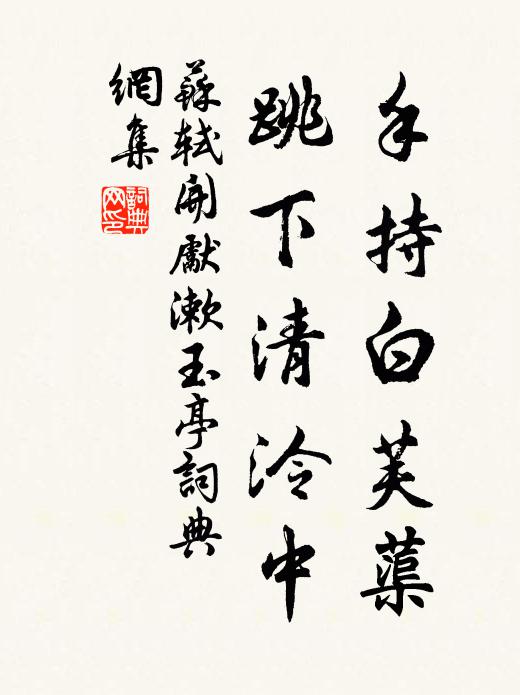 手持白芙蕖
跳下清泠中
蘇軾開獻漱玉亭詞典
網集
詞典
网印